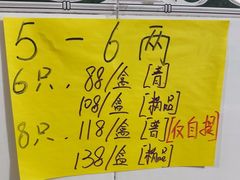 5－6两
6只，88/盒 [普]
108/盒 [精品]
8只，118/盒 [普] 仅自提
138/盒 [精品]